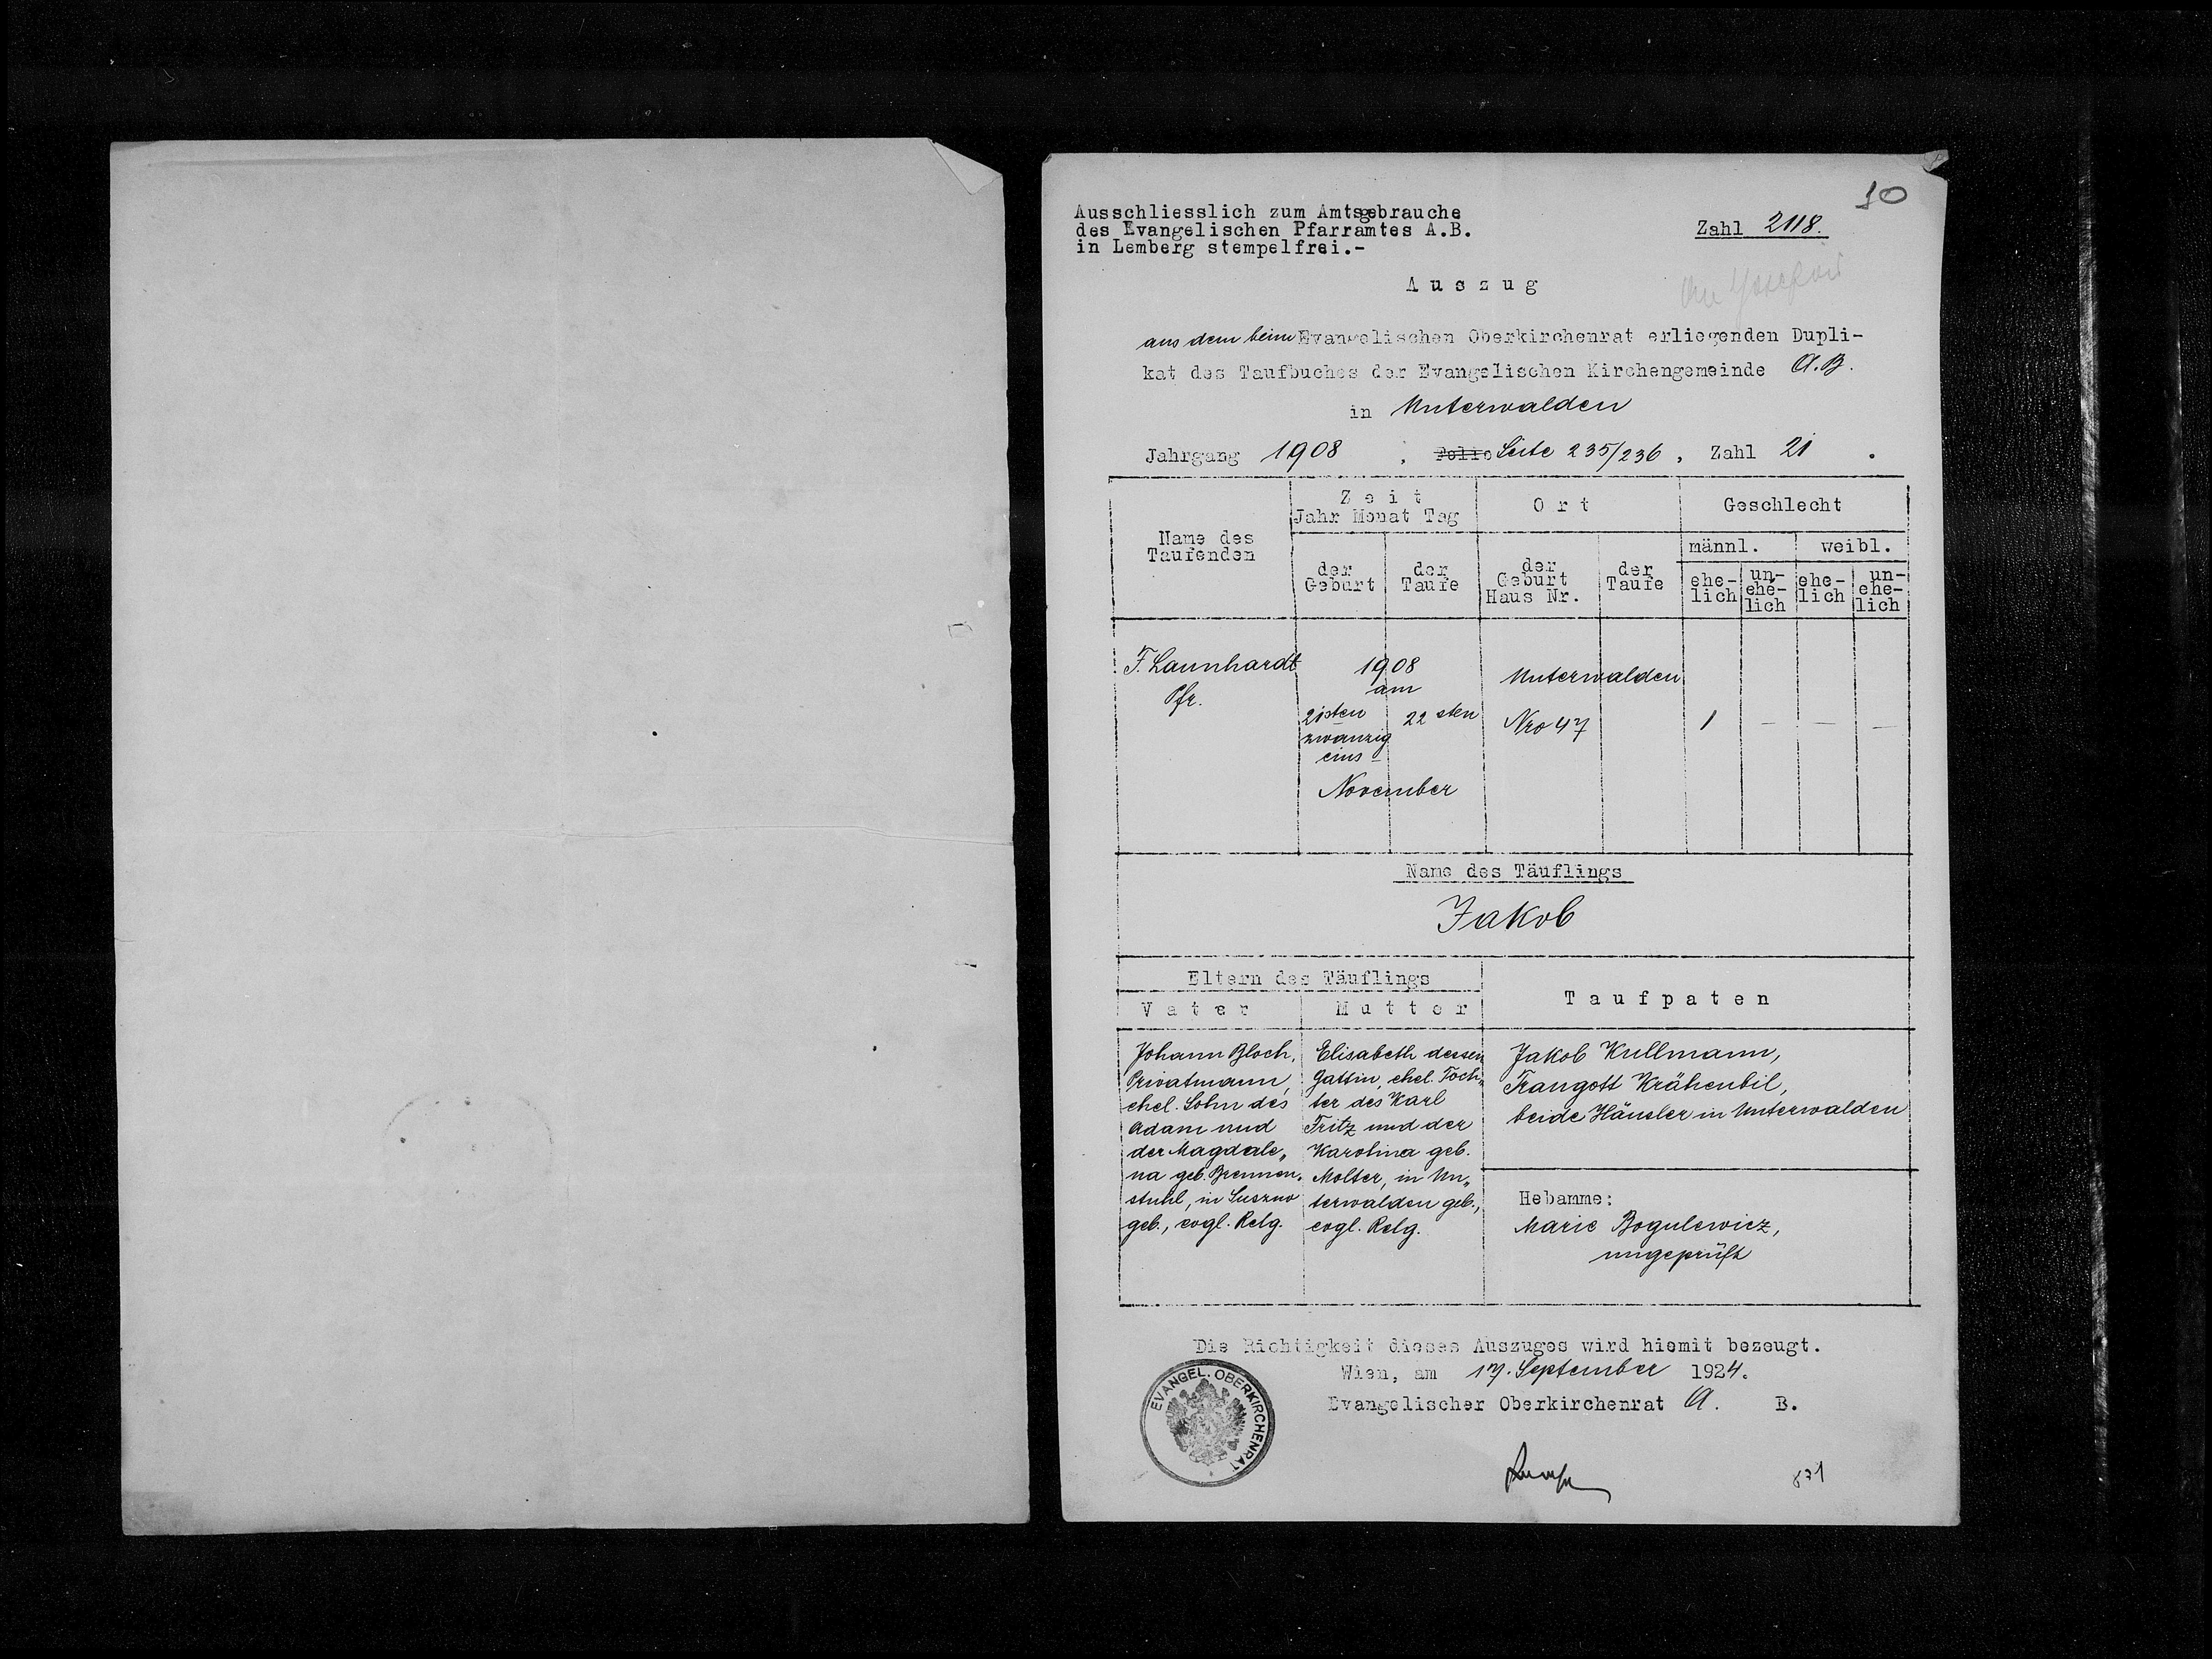 10
Ausschliesslich zum Amtsgebrauche
des Evangelischen Pfarramtes A.B.
in Lemberg stempelfrei.-
Zahl 2118.
Auszug
aus dem beim Evangelischen Oberkirchenrat erliegenden Dupli-
kat des Taufbuches der Evangelischen Kirchengemeinde A.B.
in Unterwalden
Jahrgang 1908, Folio Seite 235/236, Zahl 21.
Name des
Taufenden
Zeit
Jahr Monat Tag
der
Geburt
der
Taufe
Ort
der
Geburt
Haus Nr.
der
Taufe
Geschlecht
männl.
weibl.
ehe-
lich
un-
ehe-
lich
ehe-
lich
un-
ehe-
lich
F. Launhardt
Pfr.
1908
am
21sten
zwanzig
eins
22sten
November
Unterwalden
Nro 47
1 — — —
Name des Täuflings
Jakob
Eltern des Täuflings
Vater
Mutter
Taufpaten
Johann Bloch,
Privatmann,
ehel. Sohn des
Adam und
der Magdale„
na geb. Brennen„
stuhl, in Suszno
geb., evgl. Relg.
Elisabeth dessen
Gattin, ehel. Toch„
ter des Karl
Fritz und der
Karolina geb.
Molter, in Un„
terwalden geb.,
evgl. Relg.
Jakob Kullmann,
Traugott Krähenbil,
beide Häusler in Unterwalden
Hebamme:
Marie Bogulewicz,
ungeprüft
Die Richtigkeit dieses Auszuges wird hiemit bezeugt.
Wien, am 17. September 1924.
Evangelischer Oberkirchenrat A. B.
EVANGEL. OBERKIRCHENRAT
871